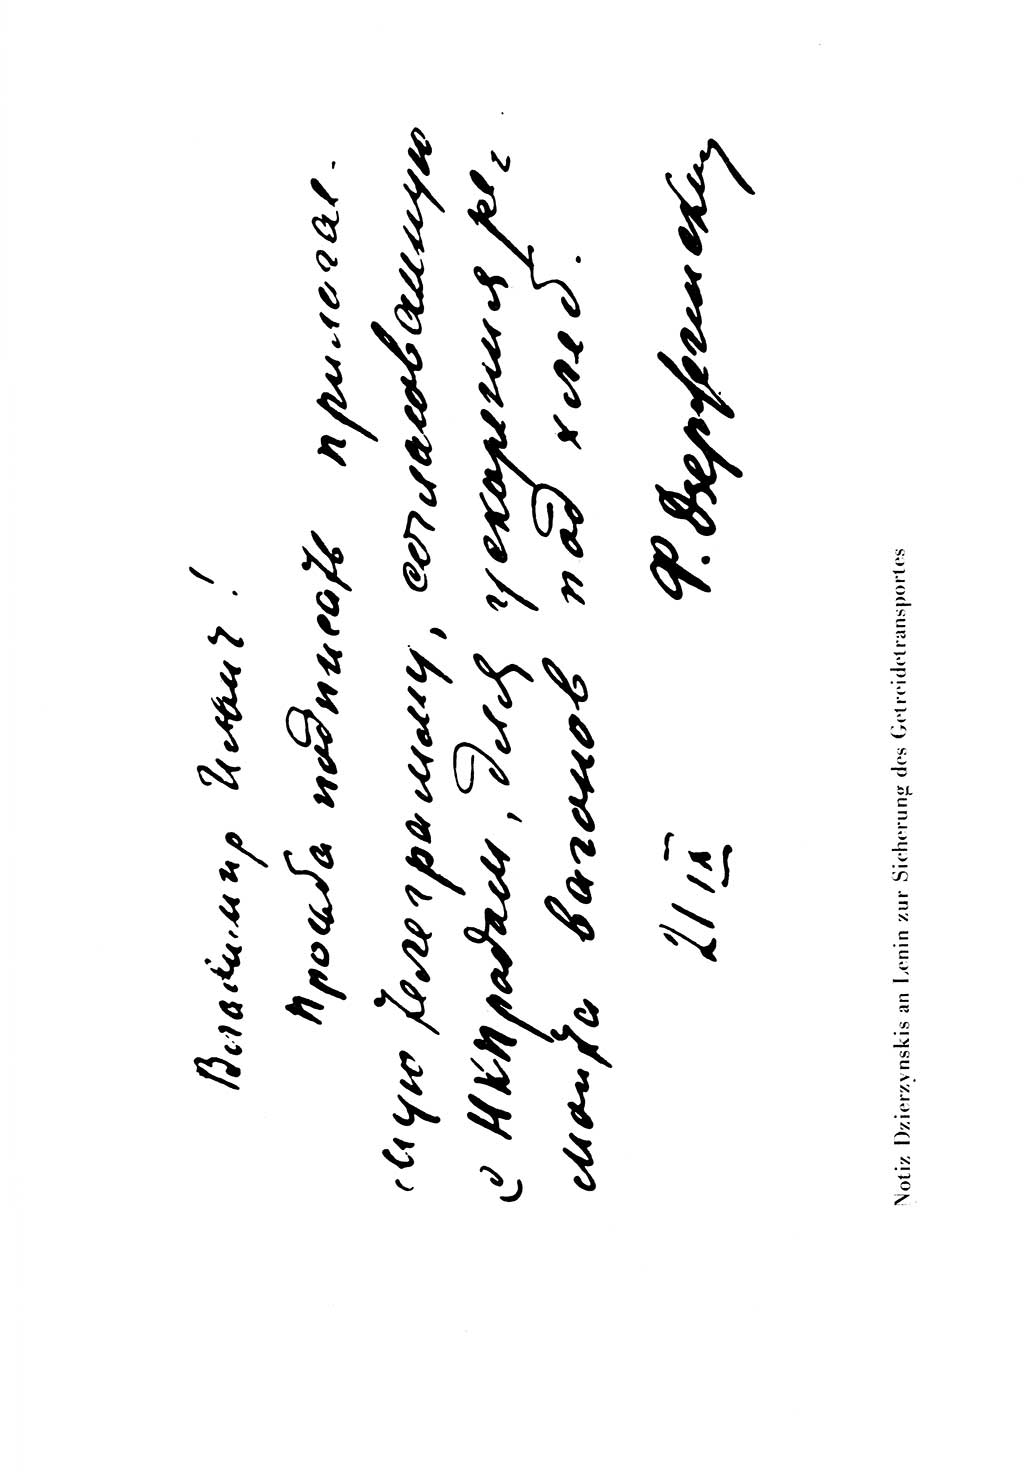 Владимир Ильич!
Прошба подписать прилагае-
мую телеграмму, согласованную
с НКпродом, для ускорения ре-
монта вагонов под хлеб.
21/IX Ф. Дзержинский
Notiz Dzierzynskis an Lenin zur Sicherung des Getreidetransportes